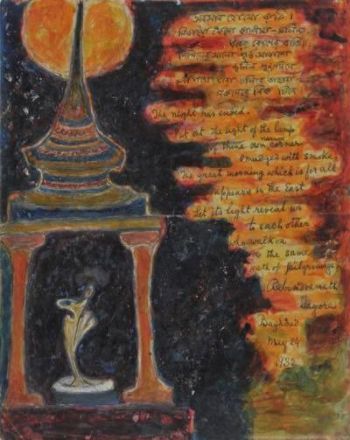 অবসান হোলো রাতি।
নিবাইয়া ফেলো কালিমা-মলিন
ঘরের কোণের বাতি।
নিখিলের আলো পূর্ব আকাশে
জ্বলিল পুণ্যদিনে
এক পথে যারা চলিবে তাহারা
সকলেরে নিক চিনে
The night has ended.
Put out the light of the lamp
of thine own narrow corner
smudged with smoke,
The great morning which is for all
appears in the East
Let its light reveal us
to each other
who walk on
the same
path of pilgrimage
Rabindranath
Tagore
Baghdad
May 24
1932